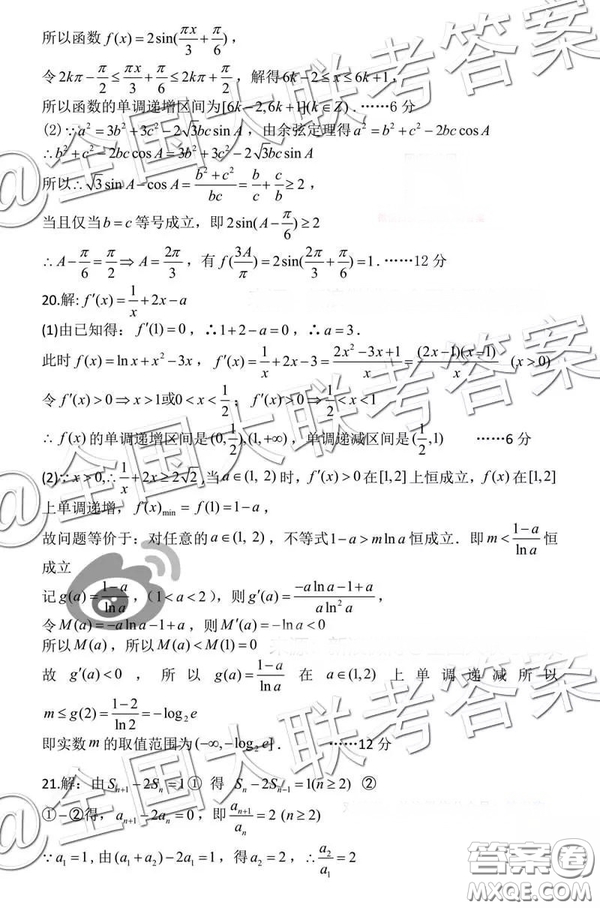 所以函数 f(x)=2sin(πx/3+π/6),
令2kπ-π/2≤πx/3+π/6≤2kπ+π/2, 解得6k-2≤x≤6k+1,
所以函数的单调递增区间为[6k-2,6k+1](k∈Z). ……6分
(2)∵a²=3b²+3c²-2√3bcsinA, 由余弦定理得a²=b²+c²-2bccosA
∴b²+c²-2bccosA=3b²+3c²-2√3bcsinA
所以∴√3sinA-cosA=(b²+c²)/bc=b/c+c/b≥2,
当且仅当b=c等号成立, 即2sin(A-π/6)≥2
∴A-π/6=π/2⇒A=2π/3, 有f(3A/π)=2sin(2π/3+π/6)=1. ……12分
20.解: f′(x)=1/x+2x-a
(1)由已知得: f′(1)=0, ∴1+2-a=0, ∴a=3.
此时f(x)=lnx+x²-3x, f′(x)=1/x+2x-3=(2x²-3x+1)/x=(2x-1)(x-1)/x (x>0)
令f′(x)>0⇒x>1或0<x<1/2; f′(x)<0⇒1/2<x<1
∴f(x)的单调递增区间是(0,1/2),(1,+∞), 单调递减区间是(1/2,1) ……6分
(2)∵x>0,∴1/x+2x≥2√2,当a∈(1, 2)时, f′(x)>0在[1,2]上恒成立, f(x)在[1,2]
上单调递增, f(x)min=f(1)=1-a,
故问题等价于: 对任意的a∈(1, 2), 不等式1-a>mlna恒成立. 即m<(1-a)/lna恒
成立
记g(a)=(1-a)/lna, (1<a<2), 则g′(a)=(-alna-1+a)/(aln²a),
令M(a)=-alna-1+a, 则M′(a)=-lna<0
所以M(a), 所以M(a)<M(1)=0
故g′(a)<0, 所以g(a)=(1-a)/lna在a∈(1,2)上单调递减所以
m≤g(2)=(1-2)/ln2=-log₂e
即实数m的取值范围为(-∞,-log₂e]. ……12分
21.解: 由Sₙ₊₁-2Sₙ=1① 得 Sₙ-2Sₙ₋₁=1(n≥2) ②
①-②得, aₙ₊₁-2aₙ=0, 即aₙ₊₁/aₙ=2 (n≥2)
∵a₁=1, 由(a₁+a₂)-2a₁=1, 得a₂=2, ∴a₂/a₁=2
@全国大联考答案
@全国大联考答案
答案卷
MXQE.COM